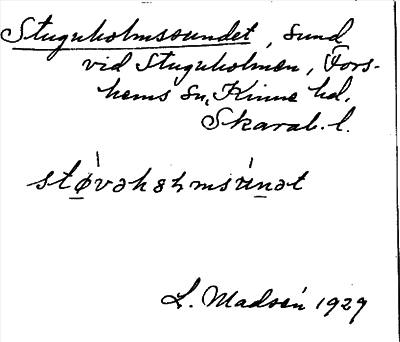 Stuguholmssundet, sund
vid Stuguholmen, Fors-
hems sn, Kinne hd.
Skarab. l.
støvəhəlmsunət
L. Madsén 1929